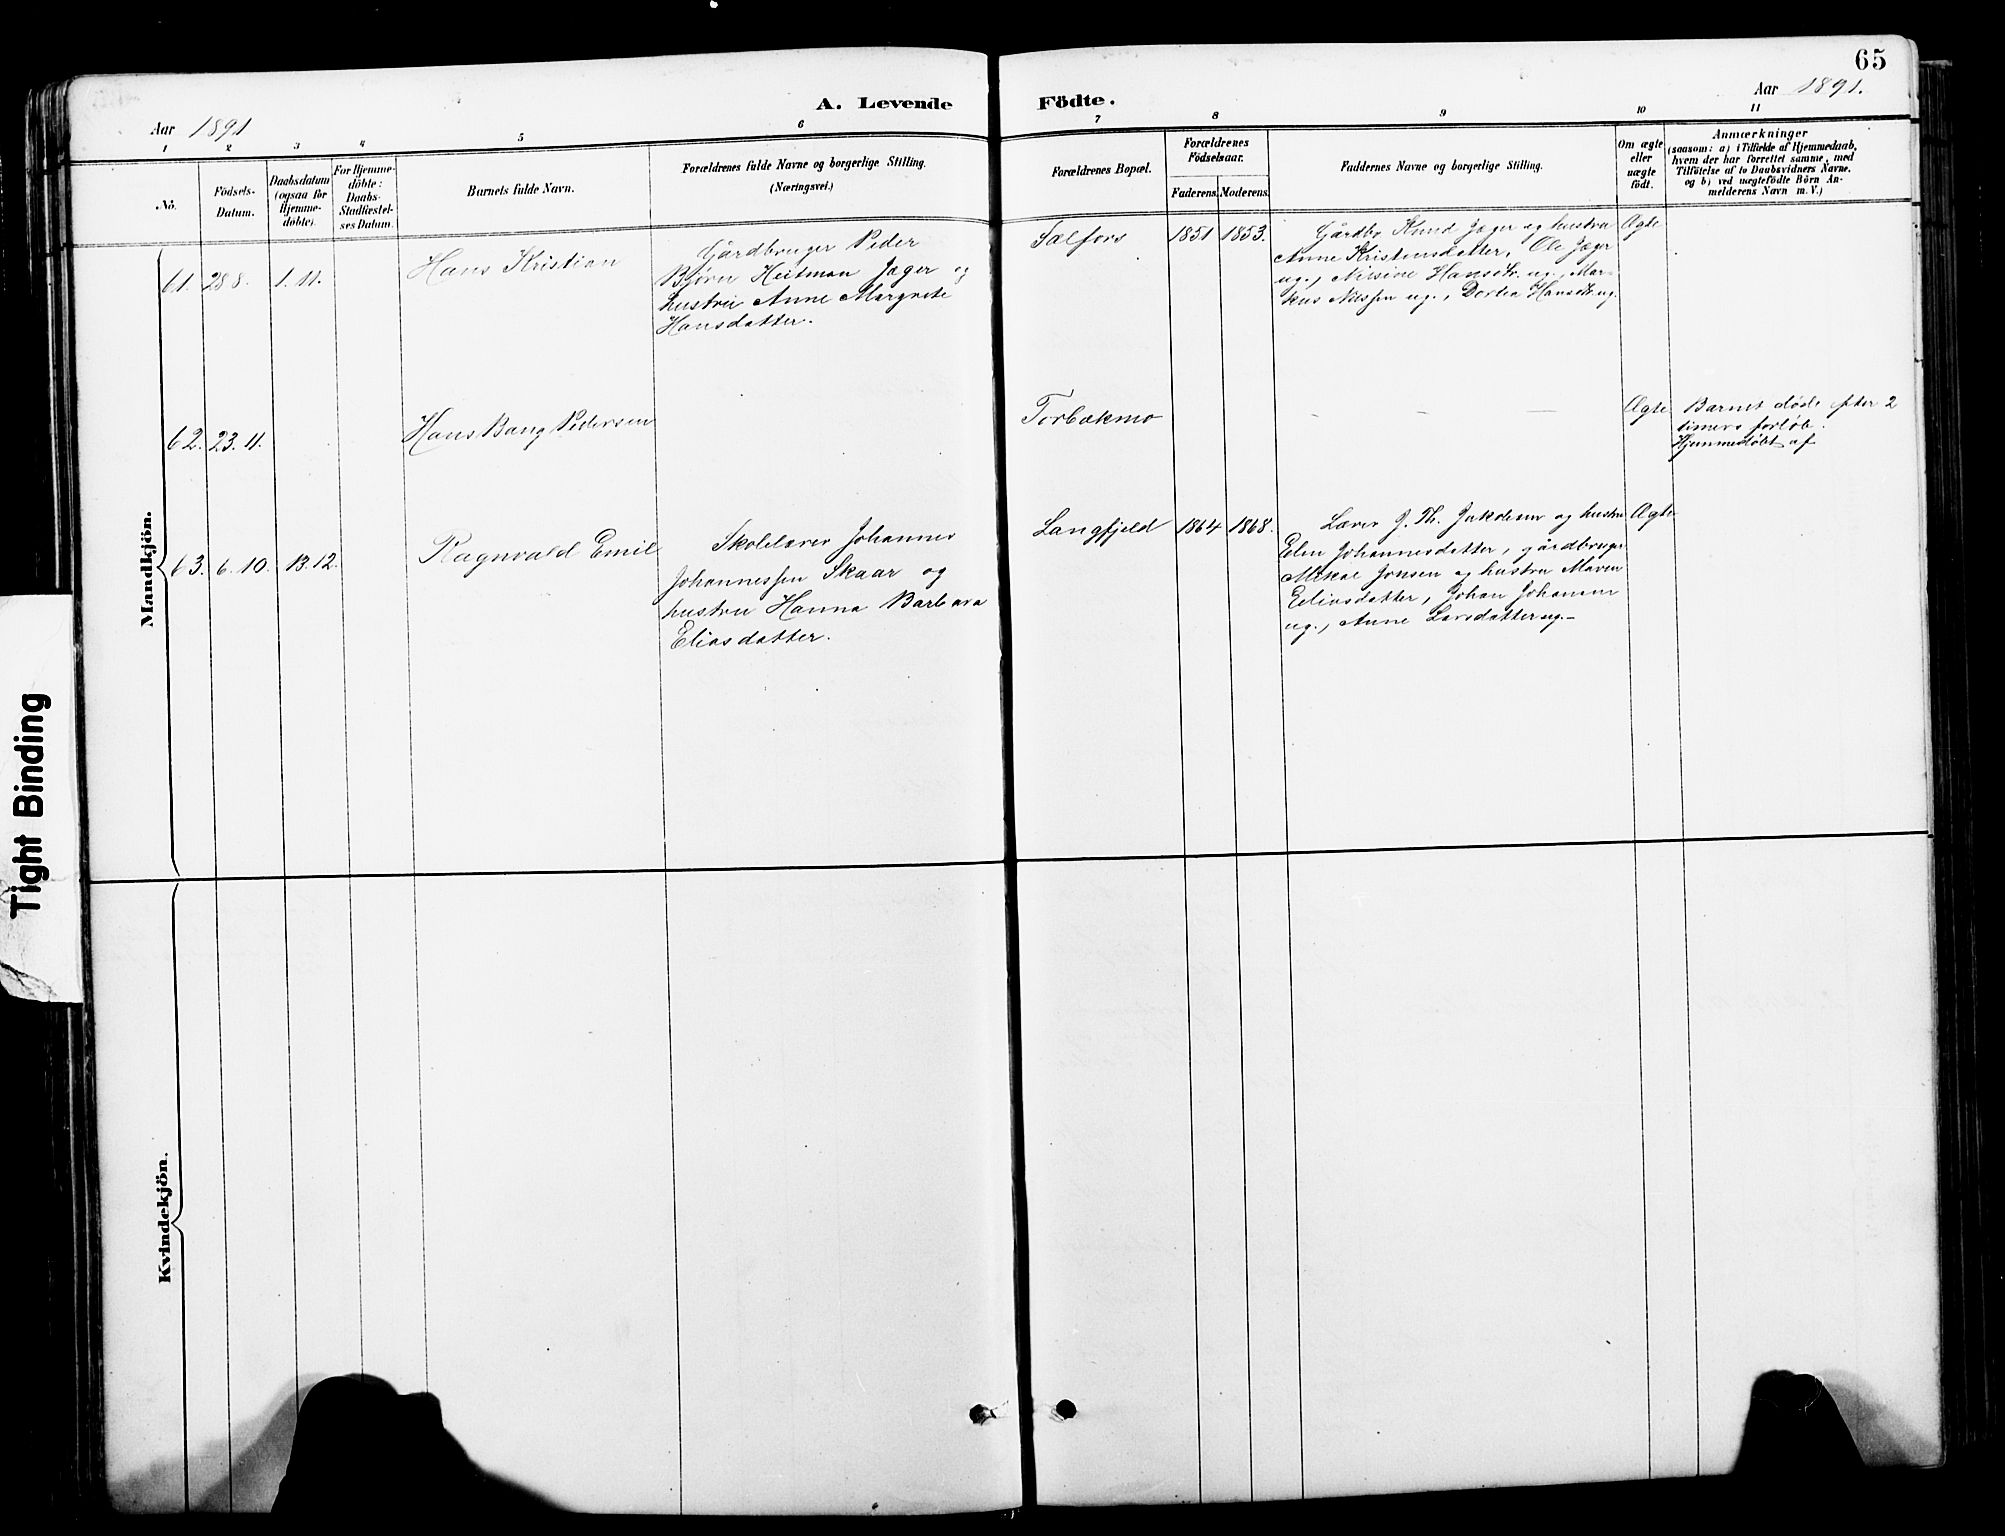 65
A. Levende
Födte.
Aar 1891
Aar 1891.
1 2 3 4 5 6
7 8 9 10 11
No.
Födsels-
Datum.
Daabsdatum
(ogsaa for
Hjemme-
döbte).
For Hjemme-
döbte:
Daabs-
Stadfæstel-
ses Datum.
Barnets fulde Navn.
Forældrenes fulde Navne og borgerlige Stilling.
(Næringsvei.)
Forældrenes Bopæl.
Forældrenes
Födselsaar.
Faderens. Moderens.
Faddernes Navne og borgerlige Stilling.
Om ægte
eller
uægte
født.
Anmærkninger
(saasom: a) i Tilfælde af Hjemmedaab,
hvem der har forrettet samme, med
Tilföielse af to Daabsvidners Navne,
og b) ved uægtefödte Börn An-
melderens Navn m. V.)
Mandkjön.
61. 28.8. 1.11.
Hans Kristian
Gårdbruger Peder
Bjørn Heitman Jæger og
hustru Anne Margrete
Hansdatter.
Salfors
1851 1853.
Gårdbr Knud Jæger og hustru
Anne Kristensdatter, Ole Jæger
ug., Nilsine Hansdtr. ug., Mar-
kus Nilssen ug., Dortea Hansdtr. ug.
Ægte
62. 23.11.
Hans Bang Pedersen
Torbækmo
– – –
Ægte
Barnet døde efter 2
timers forløb.
Hjemmedøbt af
63. 6.10. 13.12.
Ragnvald Emil
Skolelærer Johannes
Johannessen Skaar og
hustru Hanna Barbara
Eliasdatter.
Langfjeld
1864 1868.
Lærer J. Th. Jakobsen og hustru
Elen Johannesdatter, gårdbruger
Mikal Jonsen og hustru Maren
Eliasdatter, Johan Johansen
ug., Anne Larsdatter ug.-
Ægte
Kvindekjön.
Tight Binding